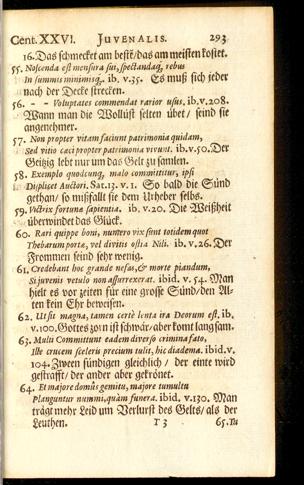 Cent. XXVI. JUVENALIS. 293
16. Das schmecket am besten/das am meisten kostet.
55. Noscenda est mensura sui, spectandaq́, rebus
In summis minimisq́. ib. v. 35. Es muß sich jeder
nach der Decke strecken.
56. - - Voluptates commendat rarior usus. ib. v. 208.
Wann man die Wollüst selten übet / seind sie
angenehmer.
57. Non propter vitam faciunt patrimonia quidam,
Sed vitio cæci propter patrimonia vivunt. ib. v. 50. Der
Geitzig lebt nur um das Gelt zu samlen.
58. Exemplo quodcunq, malo committitur, ipsi
Displicet Auctori. Sat. 13. v. 1. So bald die Sünd
gethan/ so mißfallt sie dem Urheber selbs.
59. Victrix fortunæ sapientia. ib. v. 20. Die Weißheit
überwindet das Glück.
60. Rari quippe boni, numero vix sunt totidem quot
Thebarum portæ, vel divitis ostia Nili. ib. v. 26. Der
Frommen seind sehr wenig.
61. Credebant hoc grande nefas, & morte piandum,
Si juvenis vetulo non assurrexerat. ibid. v. 54. Man
hielt es vor zeiten für eine grosse Sünd/den Al-
ten kein Ehr beweisen.
62. Ut sit magna, tamen certè lenta ira Deorum est. ib.
v. 100. Gottes zorn ist schwär/aber komt langsam.
63. Multi Committunt eadem diverso crimina fato,
Ille crucem sceleris precium tulit, hic diadema. ibid. v.
104. Zween sündigen gleichlich / der einte wird
gestrafft/ der ander aber gekrönet.
64. Et majore domûs gemitu, majore tumultu
Planguntur nummi, quàm funera. ibid. v. 130. Man
trägt mehr Leid um Verlurst des Gelts/ als der
Leuthen. T 3 65. Tu